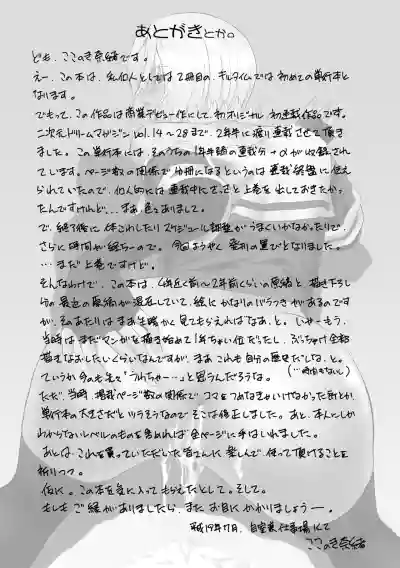 あとがきとか。
ども、ここのき奈緒です。
えー、この本は、私個人としては2冊目の、キルタイムでは初めての単行本と
なります。
でもって、この作品は商業デビュー作にして初オリジナル、初連載作品です。
二次元ドリームマガジン vol.14〜28まで、2年半に渡り連載させて頂き
ました。この単行本には、そのうちの1年半頃の連載分+αが収録され
ています。ページ数の関係で分冊になるというのは連載終盤に伝え
られていたので、個人的には連載中にでもさっさと上巻を出しておきたかっ
たんですけれど…まあ、色々ありまして。
で、終了後に体こわしたりスケジュール調整がうまくいかなかったりで、
さらに時間が経ちーので。今回ようやく発刊の運びとなりました。
…まだ上巻ですけど。
そんなわけで、この本は、4年近く前〜2年前くらいの原稿と、描き下ろし
分の最近の原稿が混在していて、絵にかなりのばらつきがあるのです
が、そのあたりはまあ生暖かく見てもらえればなあ、と。いやーもう、
当時はまだマンガを描き始めて1年ちょい位だったし、ぶっちゃけ全部
描きなおしたいくらいなんですが、まあこれも自分の歴史だしな、と。
ていうか今のも先々「うわちゃー…」と思うんだろうな。
(…時間もないし)
ただ、当時、掲載ページ数の関係で、コマをつめなきゃいけなかった所とか、
単行本の大きさだとツラそうなので、そこは修正しました。あと、本人にしか
わからないレベルのものを含めれば全ページに手はいれました。
あとは、これを買っていただいた皆さんに楽しんで、使って頂けることを
祈りつつ。
仮に。この本を気に入ってもらえたとして。そして。
もしもご縁がありましたら、またお目にかかりましょうー。
平成19年7月、自室兼仕事場にて
ここのき奈緒